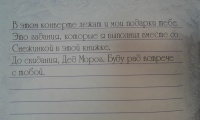 В этом конверте лежат и мои подарки тебе.
Это задания, которые я выполнил вместе со
Снежинкой в этой книжке.
До свидания, Дед Мороз. Буду рад встрече
с тобой.